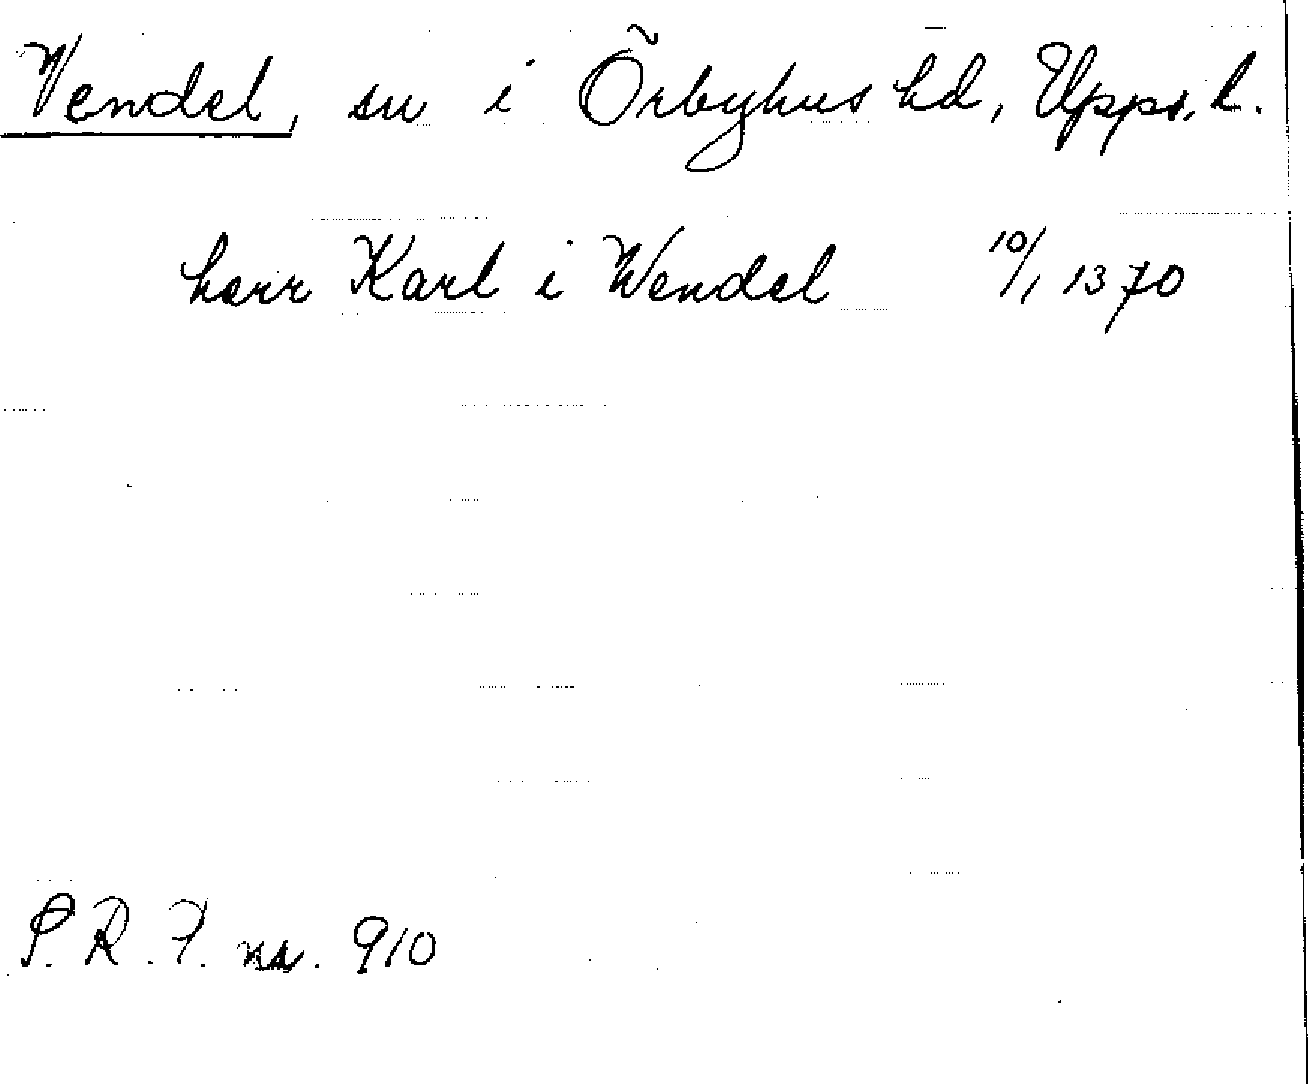 Vendel, sn i Örbyhus hd, Upps. l.
herr Karl i Wendel 10/1 1370
S. R. P. nr. 910